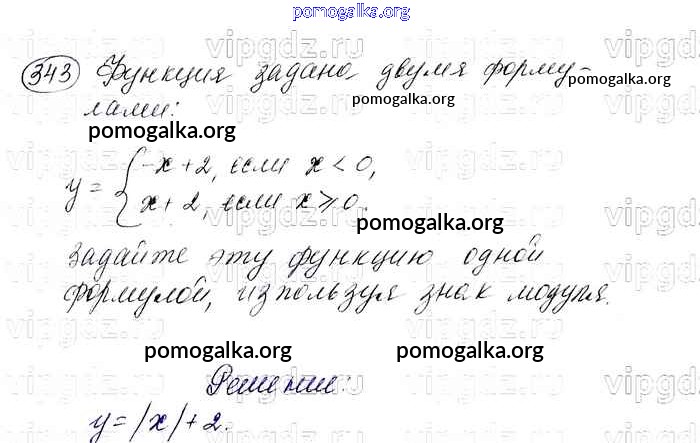 pomogalka.org
343 Функция задана двумя форму-
pomogalka.org pomogalka.org
лами:
pomogalka.org
y = { -x + 2, если x < 0,
x + 2, если x ⩾ 0.
pomogalka.org
задайте эту функцию одной
формулой, используя знак модуля.
pomogalka.org pomogalka.org
Решение:
y = |x| + 2.
vipgdz.ru